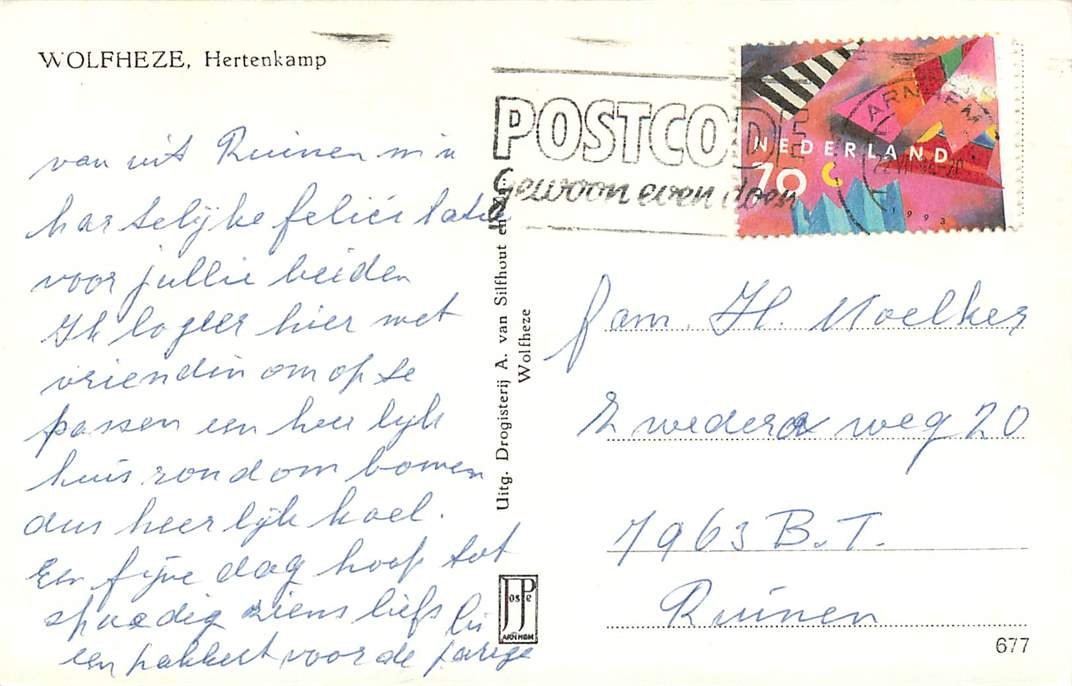 WOLFHEZE, Hertenkamp
van uit Ruinen mijn
hartelijke felicitatie
voor jullie beiden
Ik logeer hier met
vriendin om op te
passen een heerlijk
huis rondom bomen
dus heerlijk koel.
Een fijne dag hoop tot
spoedig ziens liefs
een pakkert voor de jarige
Uitg. Drogisterij A. van Silfhout
Wolfheze
JosPe
ARNHEM
POSTCODE
gewoon even doen
ARNHEM
NEDERLAND
70 c
1993
fam. H. Moelker
Zwedera weg 20
7963 B.T.
Ruinen
677